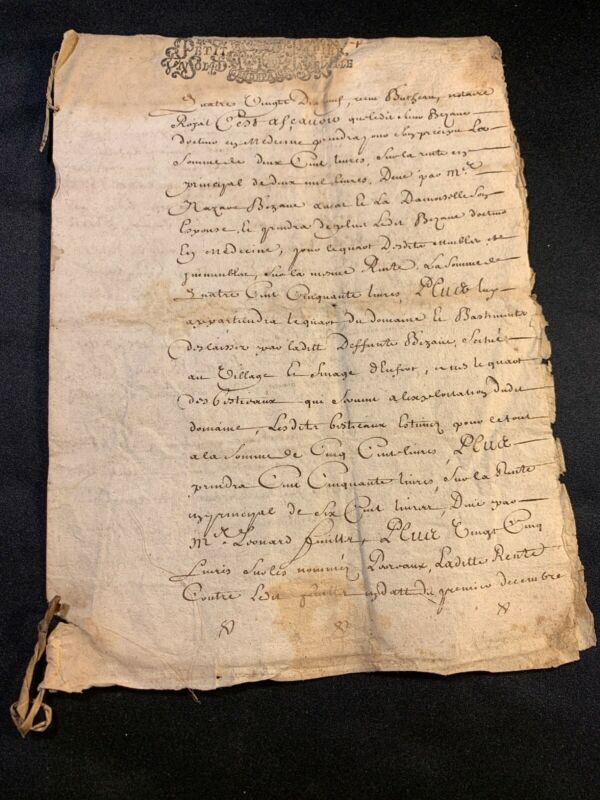 PETIT PAPIER
UN SOL D
quatre Vingt Dix neuf, Notaire
Royal C'est asçavoir que ledit sieur Bezaue
docteur en Medecine prendra pour son preciput La
Somme de deux Cent livres, Sur la rente en
principal de deux mil livres, Deue par Mr.
Bezaue La Damoiselle Son
Espouse, prendra de plus Ledit Bezaue docteur
En Medecine, pour le quart Desdits Meubles et
Sur la mesme Rente, La Somme de
quatre Cent Cinquante livres, Plus luy
appartiendra le quart du domaine et Bastiments
delaissez par laditte Deffunte Bezaue, Scitué
au Village et le quart
des bestiaux qui Servent a lexploitation dudit
domaine, Lesdits bestiaux Estimez pour le tout
a la Somme de Cinq Cent livres, Plus
prendra Cent Cinquante livres, Sur la Rente
en principal de Six Cent livres, Deue par
Mr. Leonard Plus Vingt Cinq
Livres Sur les nommez Laditte Rente
Contre Ledit en datte du premier decembre